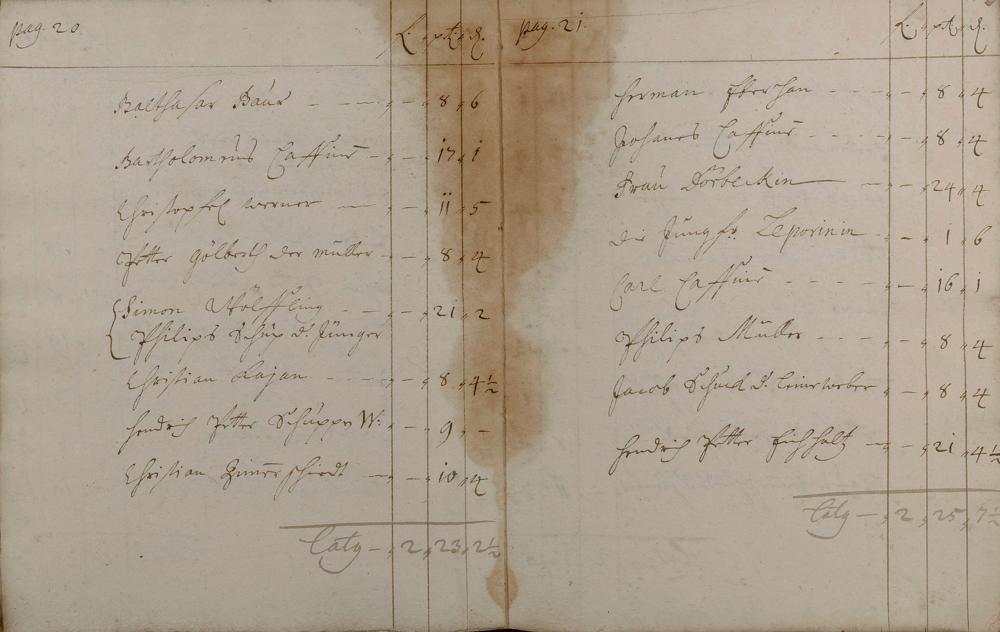 pag. 20
Balthasar Baur - - - „ - „ 8 „ 6
Bartholomeus Cassius - „ - „ 17 „ 1
Christopfel Werner - „ - „ 11 „ 5
Petter Gölberth der müller - „ - „ 8 „ 4
Simon Wölffling - - - „ - „ 21 „ 2
Philips Schup d. Jünger
Christian Rajan - - - „ - „ 8 „ 4½
Hendrich Petter Schuppen W: „ - „ 9 „ -
Christian Zimerschiedt - „ - „ 10 „ 4
Latg - „ 2 „ 23 „ 2½
pag. 21.
Herman Eberhan - - - „ - „ 8 „ 4
Johanes Cassius - - - „ - „ 8 „ 4
Frau Dörbeckin - „ - „ 24 „ 4
die Jungfr. Leporinin - „ - „ 1 „ 6
Carl Cassius - - - „ - „ 16 „ 1
Philips Muller - - - „ - „ 8 „ 4
Jacob Schuck d. Leineweber „ - „ 8 „ 4
Hendrich Petter Eichholtz - „ - „ 21 „ 4½
Latg - „ 2 „ 25 „ 7½